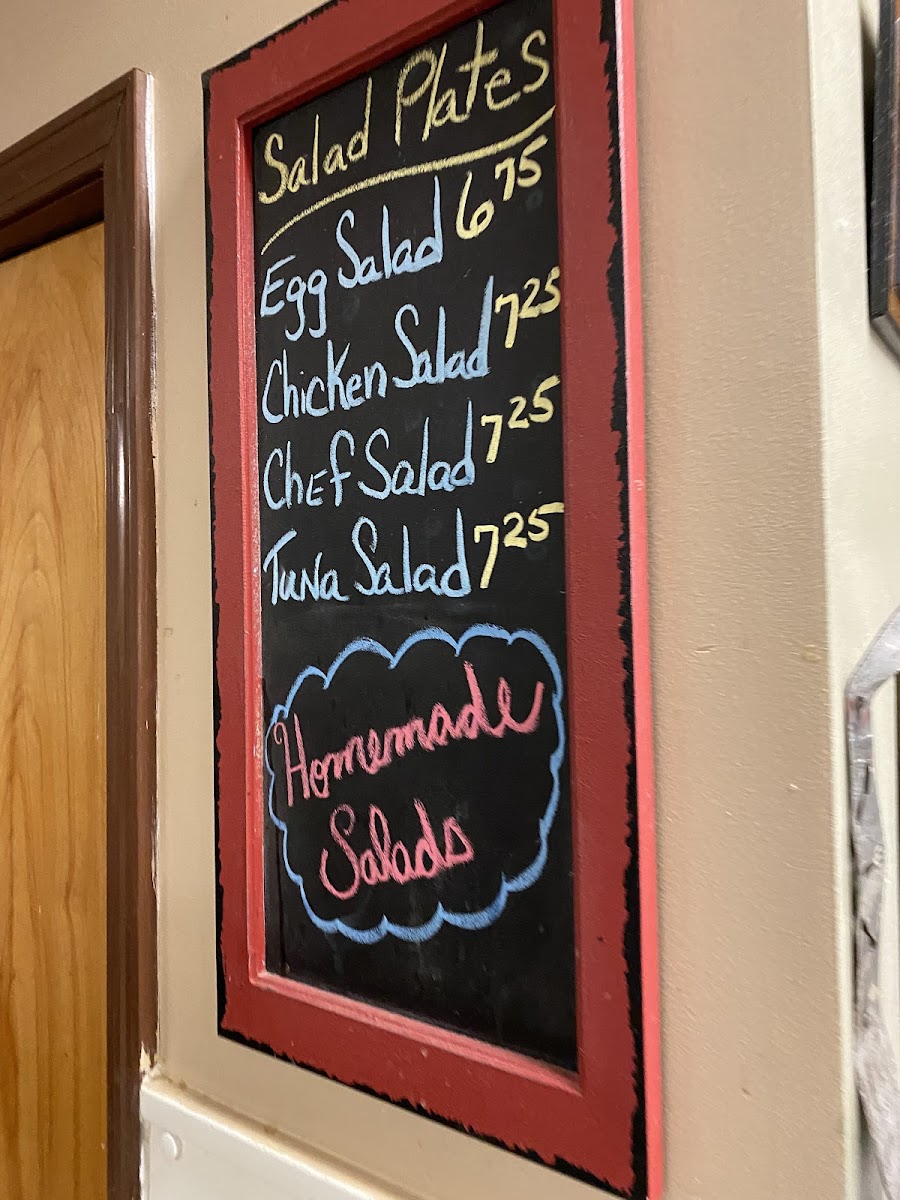 Salad Plates
Egg Salad 6 75
Chicken Salad 7 25
Chef Salad 7 25
Tuna Salad 7 25
Homemade
Salads